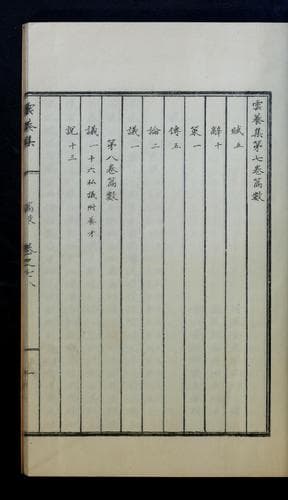 雲養集第七卷篇數
賦五
辭十
策一
傳五
論二
議一
第八卷篇數
議一十六私議附養才
說十三
雲養集
卷之七八
一